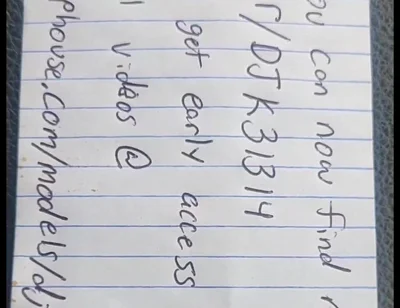 ou can now find
r/DJK31314
get early access
l videos @
phouse.com/models/dj